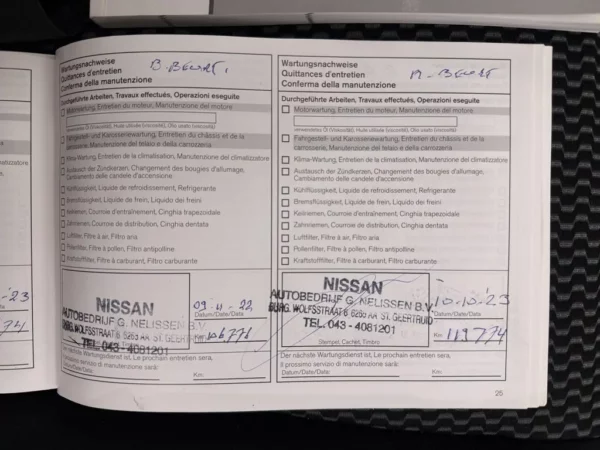 -23
74
Wartungsnachweise
Quittances d'entretien
Conferma della manutenzione
Durchgeführte Arbeiten, Travaux effectués, Operazioni eseguite
Motorwartung, Entretien du moteur, Manutenzione del motore
verwendetes Öl (Viskosität), Huile utilisée (viscosité), Olio usato (viscosità)
Fahrgestell- und Karosseriewartung, Entretien du châssis et de la
carrosserie, Manutenzione del telaio e della carrozzeria
Klima-Wartung, Entretien de la climatisation, Manutenzione del climatizzatore
Austausch der Zündkerzen, Changement des bougies d'allumage,
Cambiamento delle candele d'accensione
Kühlflüssigkeit, Liquide de refroidissement, Refrigerante
Bremsflüssigkeit, Liquide de frein, Liquido dei freini
Keilriemen, Courroie d'entraînement, Cinghia trapezoidale
Zahnriemen, Courroie de distribution, Cinghia dentata
Luftfilter, Filtre à air, Filtro aria
Pollenfilter, Filtre à pollen, Filtro antipolline
Kraftstofffilter, Filtre à carburant, Filtro carburante
NISSAN
AUTOBEDRIJF G. NELISSEN B.V.
BURG. WOLFSSTRAAT 6 6265 AA ST. GEERTRUID
TEL. 043 - 4081201
09-11-22
Datum/Date/Data:
Km:
106771
Der nächste Wartungsdienst ist, Le prochain entretien sera,
Il prossimo servizio di manutenzione sarà:
Datum/Date/Data:
Km:
Wartungsnachweise
Quittances d'entretien
Conferma della manutenzione
Durchgeführte Arbeiten, Travaux effectués, Operazioni eseguite
Motorwartung, Entretien du moteur, Manutenzione del motore
verwendetes Öl (Viskosität), Huile utilisée (viscosité), Olio usato (viscosità)
Fahrgestell- und Karosseriewartung, Entretien du châssis et de la
carrosserie, Manutenzione del telaio e della carrozzeria
Klima-Wartung, Entretien de la climatisation, Manutenzione del climatizzatore
Austausch der Zündkerzen, Changement des bougies d'allumage,
Cambiamento delle candele d'accensione
Kühlflüssigkeit, Liquide de refroidissement, Refrigerante
Bremsflüssigkeit, Liquide de frein, Liquido dei freini
Keilriemen, Courroie d'entraînement, Cinghia trapezoidale
Zahnriemen, Courroie de distribution, Cinghia dentata
Luftfilter, Filtre à air, Filtro aria
Pollenfilter, Filtre à pollen, Filtro antipolline
Kraftstofffilter, Filtre à carburant, Filtro carburante
NISSAN
AUTOBEDRIJF G. NELISSEN B.V.
BURG. WOLFSSTRAAT 6 6265 AA ST. GEERTRUID
TEL. 043 - 4081201
10-10-23
Datum/Date/Data:
Km: 119774
Stempel, Cachet, Timbro
Der nächste Wartungsdienst ist, Le prochain entretien sera,
Il prossimo servizio di manutenzione sarà:
Datum/Date/Data:
Km:
25